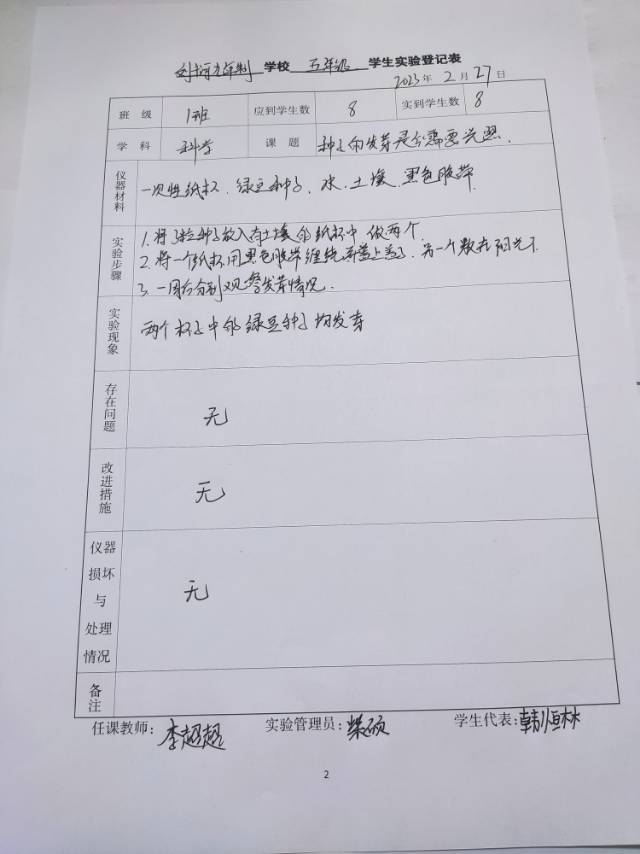 刘河九年制 学校 五年级 学生实验登记表
2023年 2月 27日
班 级 1班 应到学生数 8 实到学生数 8
学 科 科学 课 题 种子的发芽是否需要光照.
仪器材料 一次性纸杯. 绿豆种子、水、土壤、黑色胶带.
实验步骤 1. 将 粒种子放入有土壤的纸杯中 做两个.
2. 将一个纸杯用黑色胶带缠绕再盖上盖子. 另一个放在阳光下
3. 一周后分别观察发芽情况.
实验现象 两个杯子中的绿豆种子均发芽
存在问题 无
改进措施 无
仪器损坏与处理情况 无
备注
任课教师: 李超超 实验管理员: 柴硕 学生代表: 韩恒林
2